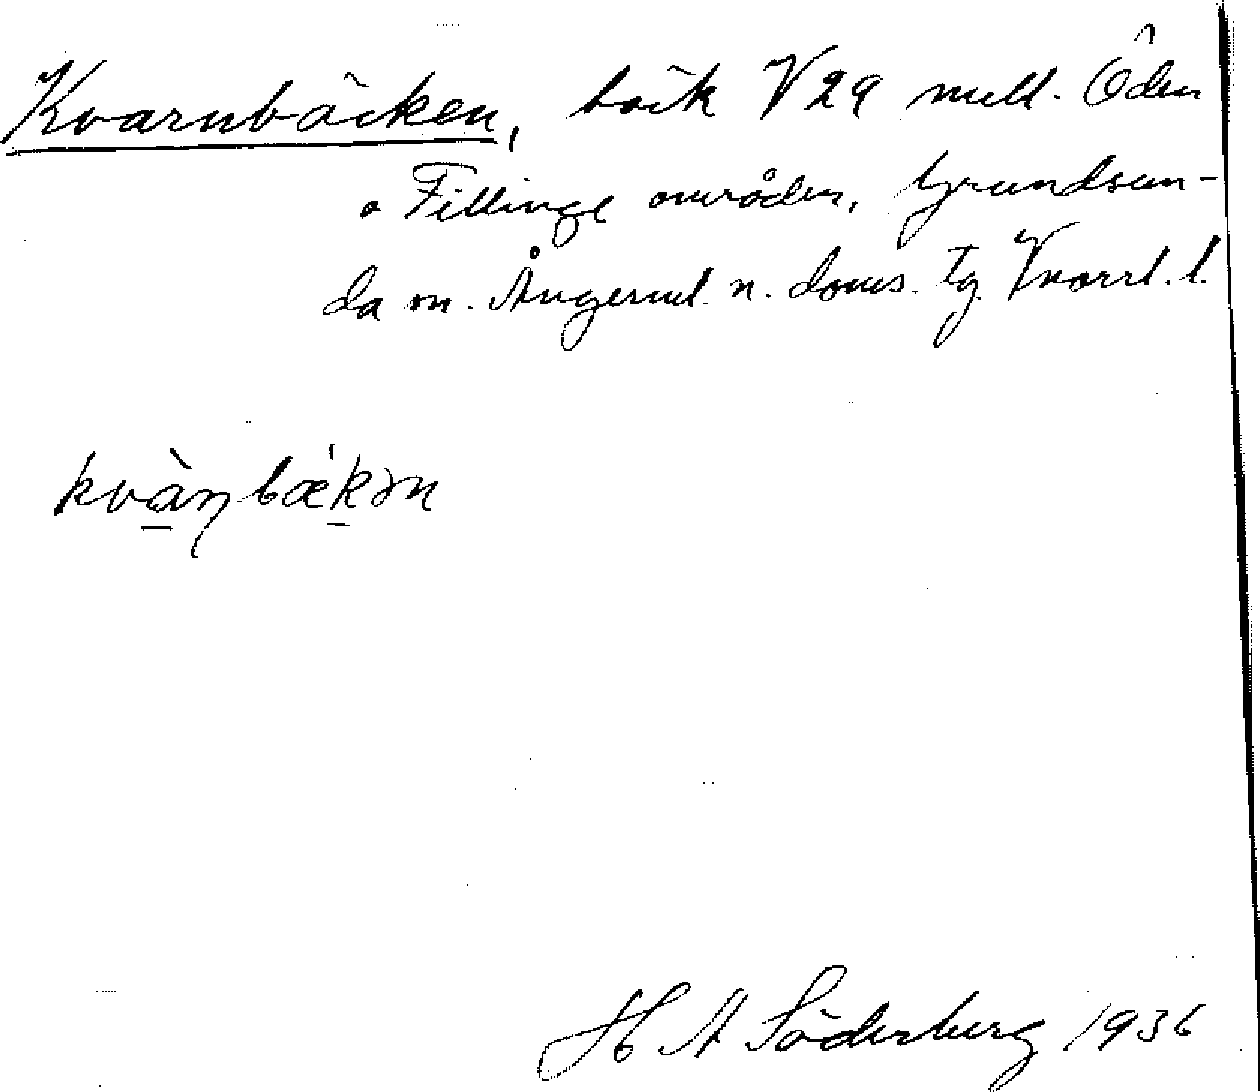 Kvarnbäcken, bäck V 29 mell. Öden
o Fillinge områden, Grundsun-
da sn. Ångerml. n. doms. tg Vnorrl. l.
kvàṇbækən
H A Söderberg 1936